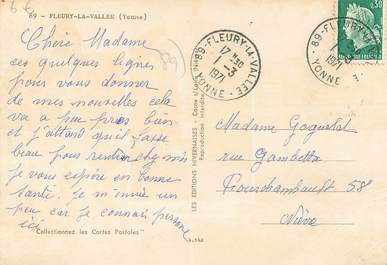 6 €
89 - FLEURY-LA-VALLEE (Yonne)
Chère Madame
ces quelques lignes
pour vous donner
de mes nouvelles cela
va a peu près bien
et j'attend qu'il fasse
beau pour rentrer chez moi
je vous espère en bonne
santé. je m'ennuie un
peu car je connais personne
ici
"Collectionnez les Cartes Postales"
89
LES EDITIONS NIVERNAISES
Reproduction interdite
A.542
89-FLEURY-LA-VALLEE
17 H 30
1-3
1971
YONNE
89-FLEURY-LA
1971
YONNE
0,30
Madame
rue Gambetta
Fourchambault 58
Nièvre